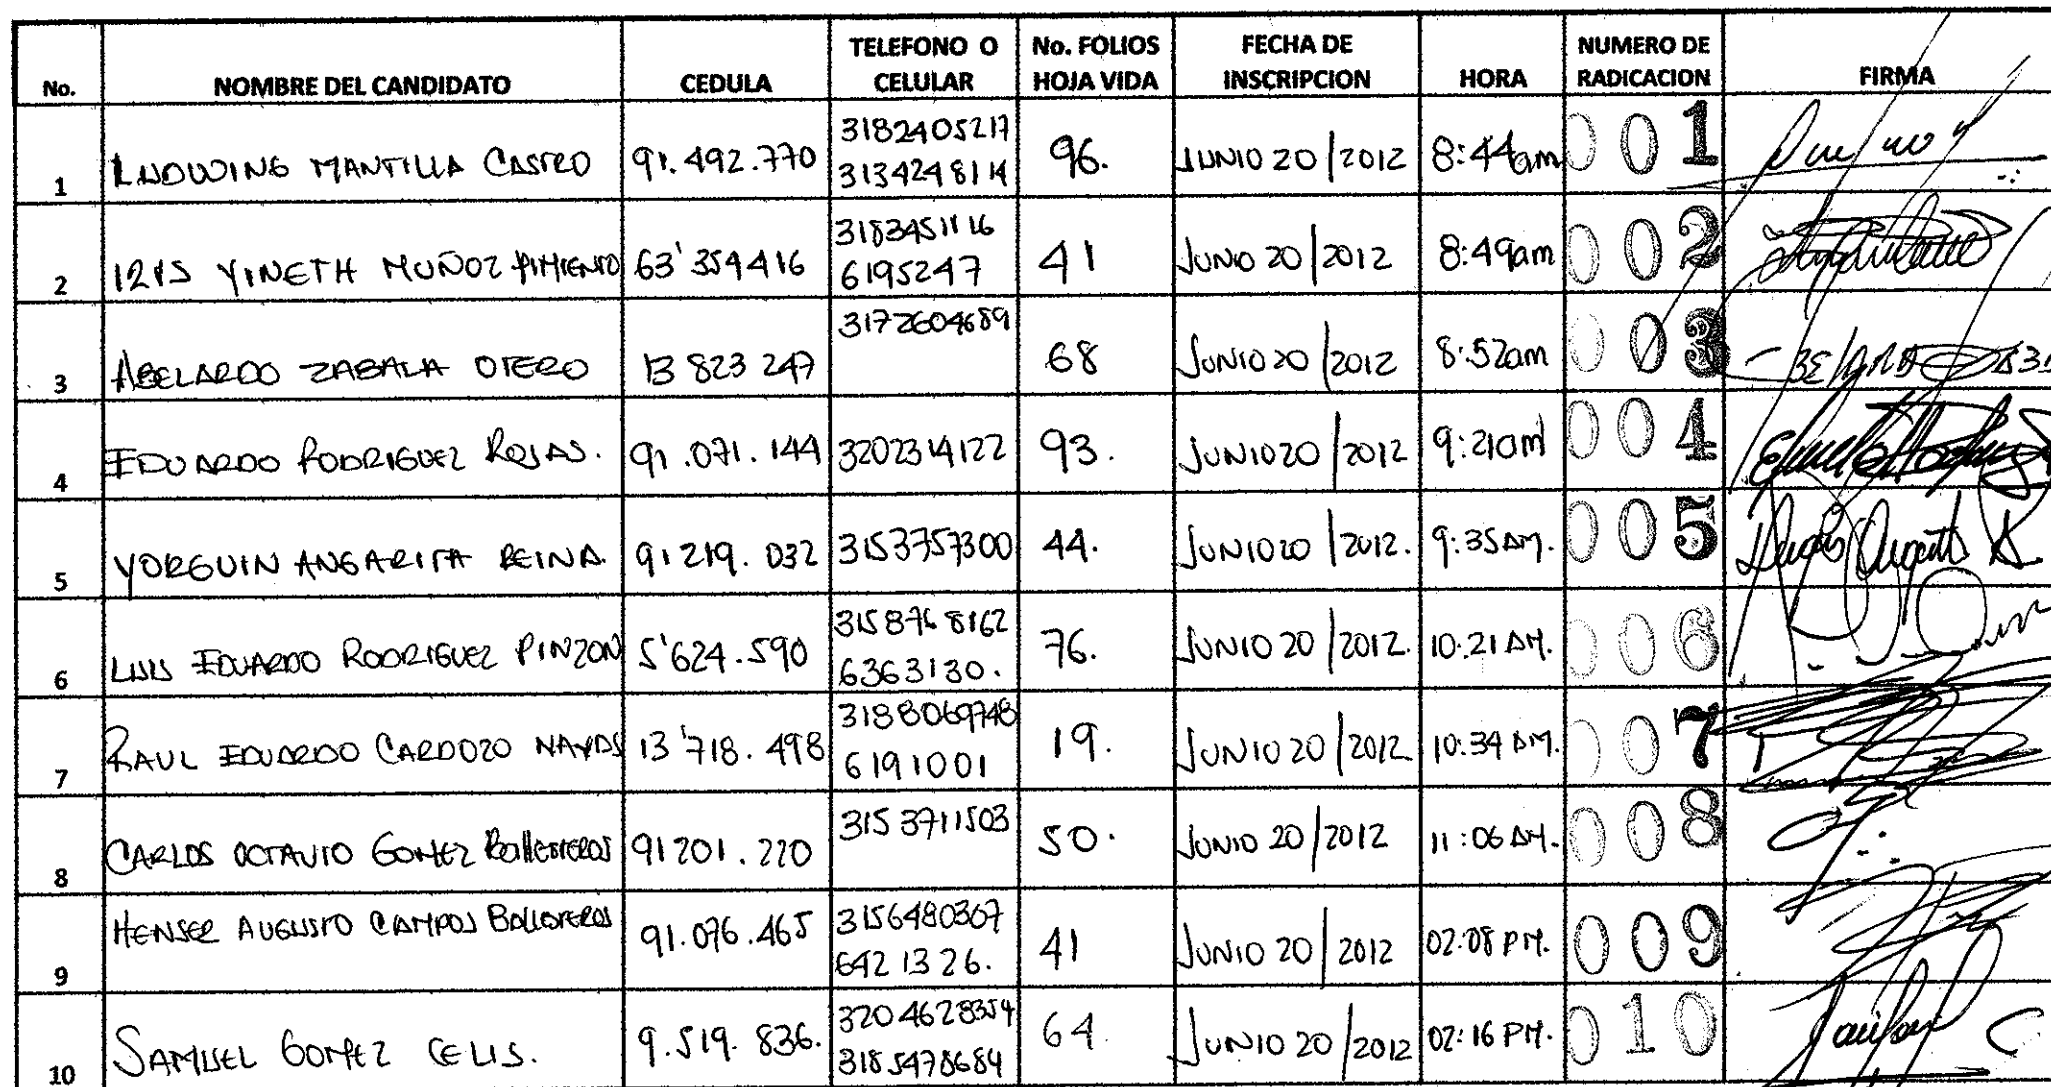 No. NOMBRE DEL CANDIDATO CEDULA TELEFONO O CELULAR No. FOLIOS HOJA VIDA FECHA DE INSCRIPCION HORA NUMERO DE RADICACION FIRMA
1 LUDWING MANTILLA CASTRO 91.492.770 3182405217 3134248114 96. JUNIO 20/2012 8:44am 001
2 IRIS YINETH MUÑOZ PIMIENTO 63'354416 3183451116 6195247 41 JUNIO 20/2012 8:49am 002
3 ABELARDO ZABALA OTERO 13 823 247 3172604689 68 JUNIO 20/2012 8:52am 003
4 EDUARDO RODRIGUEZ ROJAS. 91.071.144 3202314122 93. JUNIO 20/2012 9:21am 004
5 YORGUIN ANGARITA REINA. 91219.032 3153757300 44. JUNIO 20/2012. 9:35AM. 005
6 LUIS EDUARDO RODRIGUEZ PINZON 5'624.590 3158768162 6363130. 76. JUNIO 20/2012. 10:21AM. 006
7 RAUL EDUARDO CARDOZO NAVAS 13'718.498 3188069748 6191001 19. JUNIO 20/2012 10:34AM. 007
8 CARLOS OCTAVIO GOMEZ BALLESTEROS 91201.220 3153711503 50. JUNIO 20/2012 11:06AM. 008
9 HENSER AUGUSTO CAMPOS BALLESTEROS 91.076.465 3156480367 6421326. 41 JUNIO 20/2012 02:08PM. 009
10 SAMUEL GOMEZ CELIS. 9.519.836. 3204628354 3185478684 64. JUNIO 20/2012 02:16PM. 010